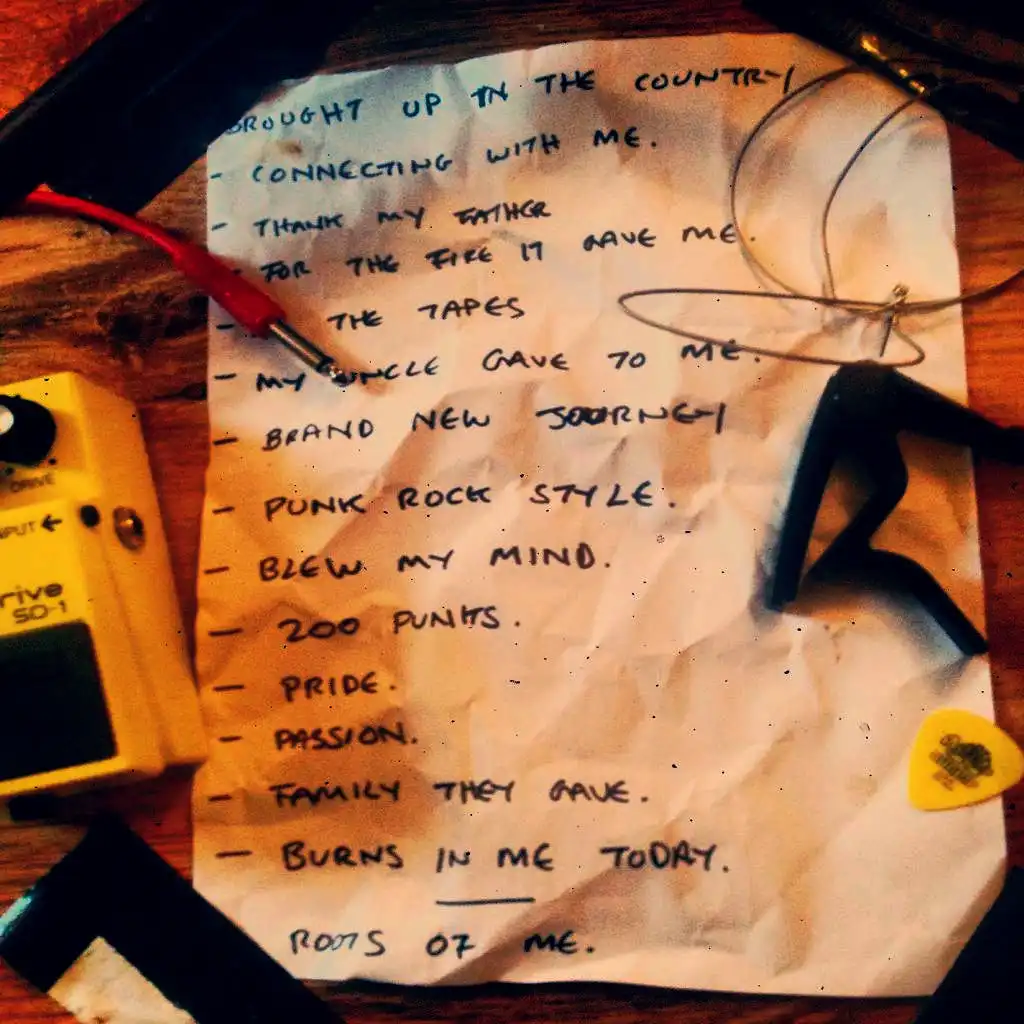 BROUGHT UP IN THE COUNTRY
- CONNECTING WITH ME.
- THANK MY FATHER
FOR THE FIRE IT GAVE ME.
- THE TAPES
- MY UNCLE GAVE TO ME.
- BRAND NEW JOURNEY
- PUNK ROCK STYLE.
- BLEW MY MIND.
- 200 PUNKS.
- PRIDE.
- PASSION.
- FAMILY THEY GAVE.
- BURNS IN ME TODAY.
ROOTS OF ME.
DRIVE
PUT ←
rive
SD-1